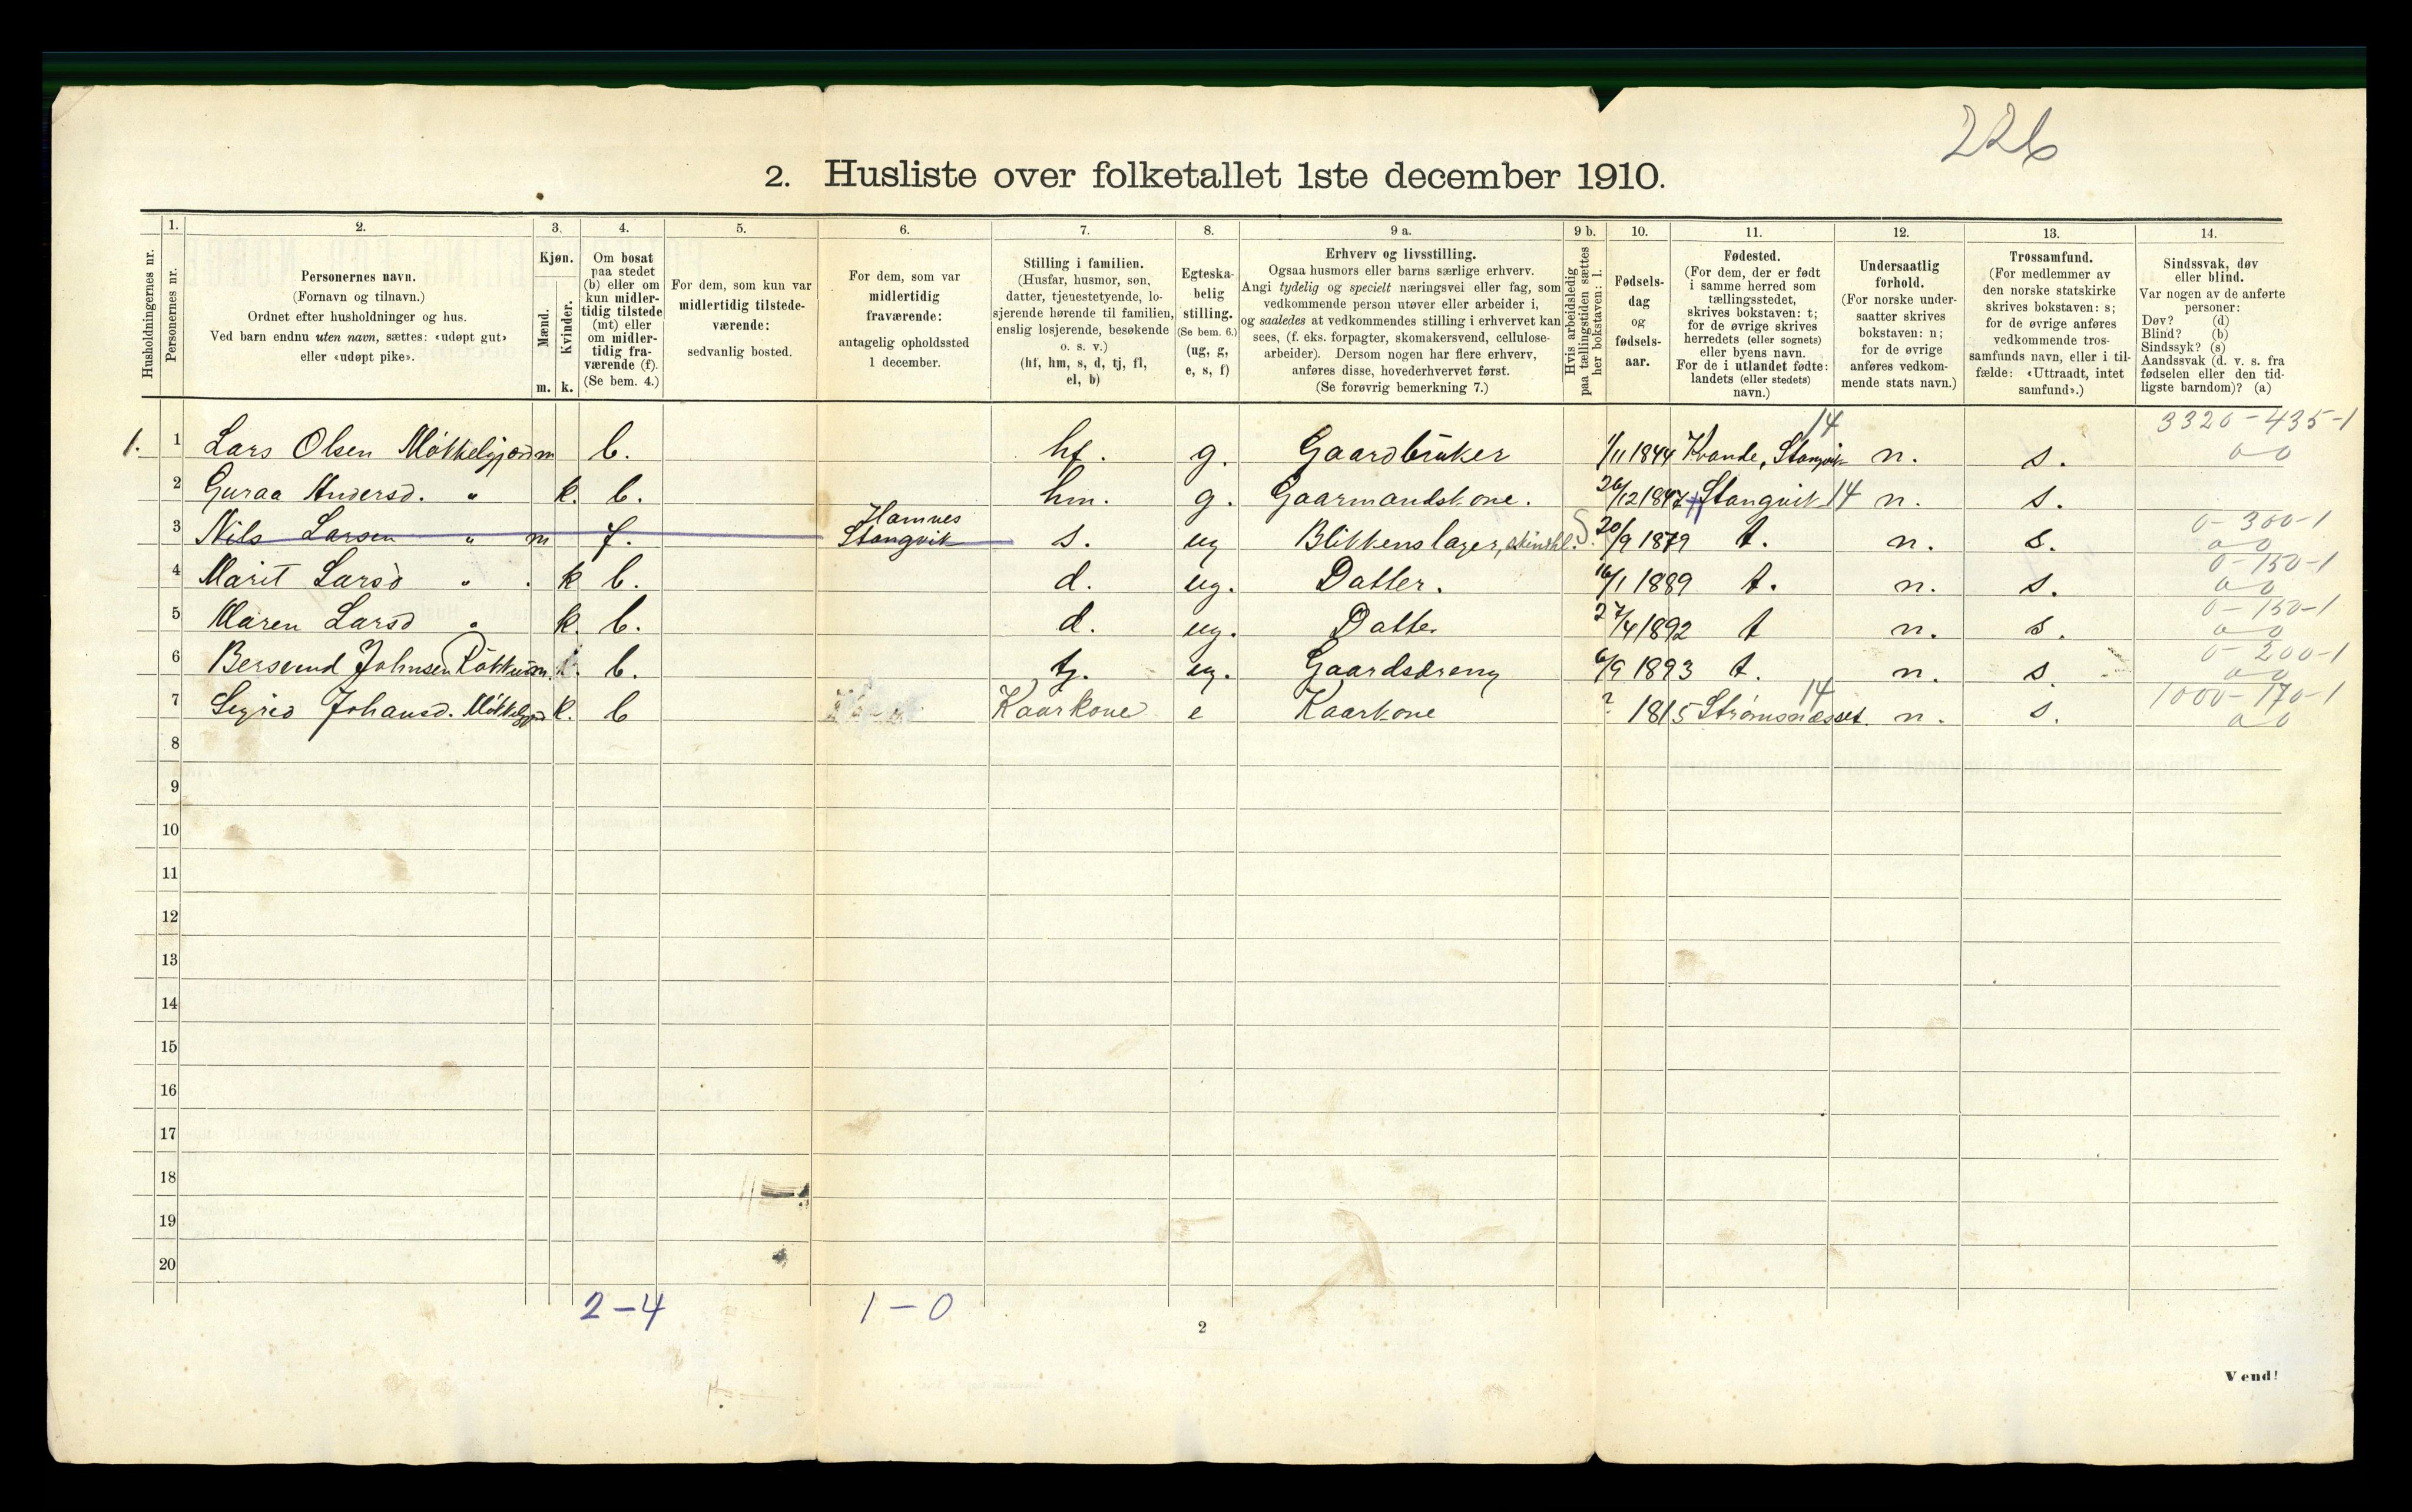 226
2. Husliste over folketallet 1ste december 1910.
1. 2. 3. 4. 5. 6. 7. 8. 9 a. 9 b. 10. 11. 12. 13. 14.
Husholdningernes nr.
Personernes nr.
Personernes navn.
(Fornavn og tilnavn.)
Ordnet efter husholdninger og hus.
Ved barn endnu uten navn, sættes: «udøpt gut»
eller «udøpt pike».
Kjøn.
Mænd.
Kvinder.
m. k.
Om bosat
paa stedet
(b) eller om
kun midler-
tidig tilstede
(mt) eller
om midler-
tidig fra-
værende (f).
(Se bem. 4.)
For dem, som kun var
midlertidig tilstede-
værende:
sedvanlig bosted.
For dem, som var
midlertidig
fraværende:
antagelig opholdssted
1 december.
Stilling i familien.
(Husfar, husmor, søn,
datter, tjenestetyende, lo-
sjerende hørende til familien,
enslig losjerende, besøkende
o. s. v.)
(hf, hm, s, d, tj, fl,
el, b)
Egteska-
belig
stilling.
(Se bem. 6.)
(ug, g,
e, s, f)
Erhverv og livsstilling.
Ogsaa husmors eller barns særlige erhverv.
Angi tydelig og specielt næringsvei eller fag, som
vedkommende person utøver eller arbeider i,
og saaledes at vedkommendes stilling i erhvervet kan
sees, (f. eks. forpagter, skomakersvend, cellulose-
arbeider). Dersom nogen har flere erhverv,
anføres disse, hovederhvervet først.
(Se forøvrig bemerkning 7.)
Hvis arbeidsledig
paa tællingstiden sættes
her bokstaven: l.
Fødsels-
dag
og
fødsels-
aar.
Fødested.
(For dem, der er født
i samme herred som
tællingsstedet,
skrives bokstaven: t;
for de øvrige skrives
herredets (eller sognets)
eller byens navn.
For de i utlandet fødte:
landets (eller stedets)
navn.)
Undersaatlig
forhold.
(For norske under-
saatter skrives
bokstaven: n;
for de øvrige
anføres vedkom-
mende stats navn.)
Trossamfund.
(For medlemmer av
den norske statskirke
skrives bokstaven: s;
for de øvrige anføres
vedkommende tros-
samfunds navn, eller i til-
fælde: «Uttraadt, intet
samfund».)
Sindssvak, døv
eller blind.
Var nogen av de anførte
personer:
Døv? (d)
Blind? (b)
Sindssyk? (s)
Aandssvak (d. v. s. fra
fødselen eller den tid-
ligste barndom)? (a)
14 3320-435-1
1. 1 Lars Olsen Møkkelgjord m b. hf. g. Gaardbrüker 1/11 1844 Kvande, Stangvik n. s. a 0
2 Guraa Andersd. " k. b. hm. g. Gaarmandskone. 26/12 1847 Stangvik 14 n. s.
Hamnes 0-300-1
3 Nils Larsen " m f. Stangvik s. ug Blikkenslager, S. 20/9 1879 t. n. s. a 0
0-150-1
4 Marit Larsd " k b. d. ug. Datter. 16/1 1889 t. n. s. a 0
0-150-1
5 Maren Larsd " k. b. d. ug. Datter 27/4 1892 t n. s. a 0
0-200-1
6 Bersvend Johnsen Røkkum m. b. tj. ug. Gaardsdreng 6/9 1893 t. n. s. a 0
14 1000-170-1
7 Sigrid Johansd. Møkkelgjord k. b Kaarkone e Kaarkone ? 1815 Strømsnæsset. n. s. a 0
8
9
10
11
12
13
14
15
16
17
18
19
20
2-4 1-0
2
Vend!